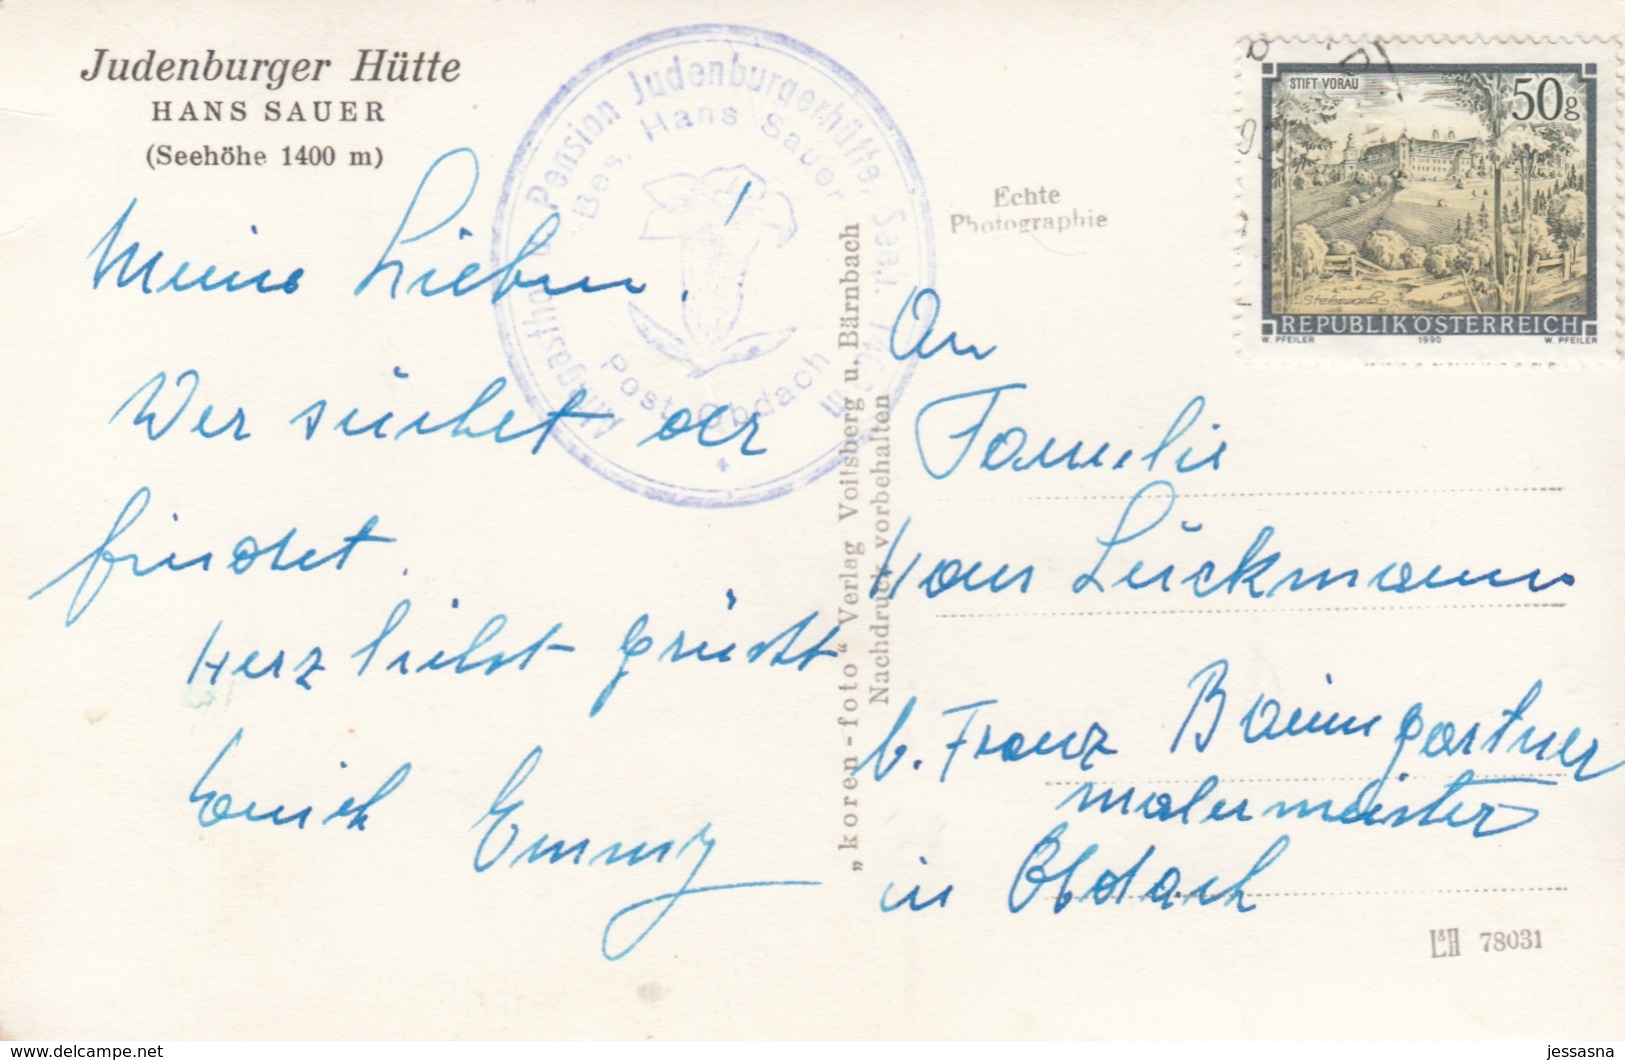 Judenburger Hütte
HANS SAUER
(Seehöhe 1400 m)
Pension Judenburgerhütte, Seal.
Bes. Hans Sauer
Post Obdach
Meine Lieben!
Wer suchet der
findet.
Herzlichst grüsst
Euch Emmy
Echte
Photographie
„koren-foto“ Verlag Voitsberg u. Bärnbach
Nachdruck vorbehalten
STIFT VORAU
50g
REPUBLIK ÖSTERREICH
W. PFEILER 1990 W. PFEILER
An
Familie
Hans Lückmann
b. Franz Baumgartner
Malermeister
in Obdach
L&H 78031
jessasna
https://www.delcampe.net